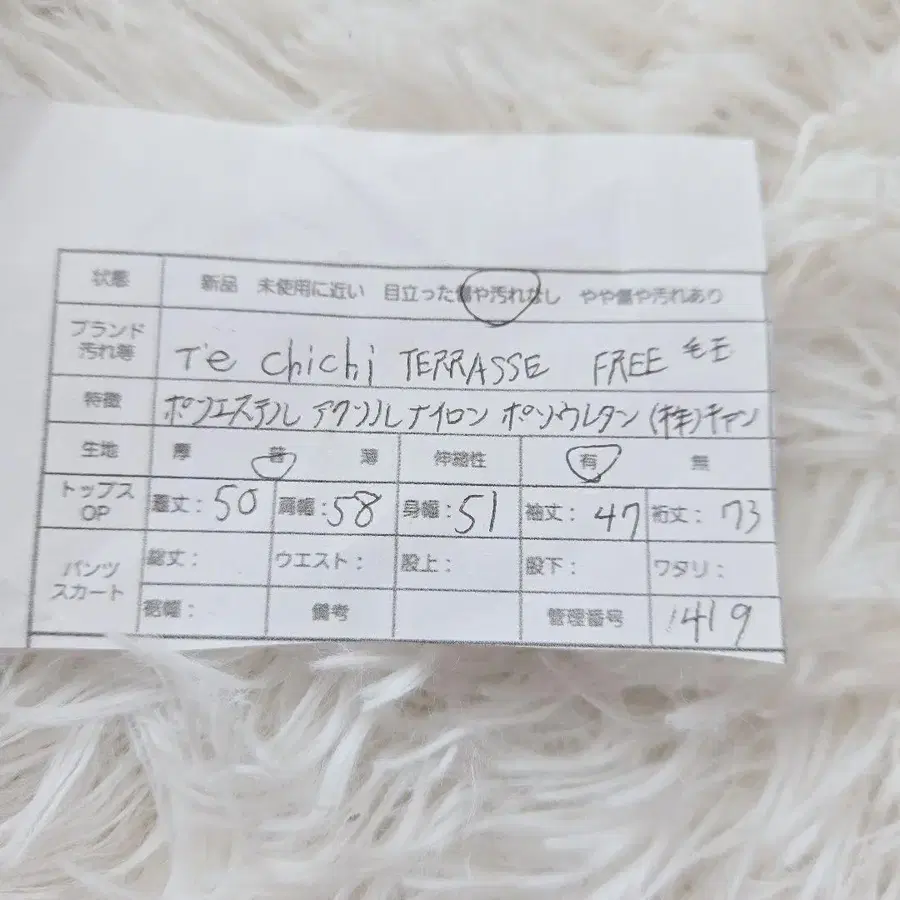 状態 新品 未使用に近い 目立った傷や汚れなし やや傷や汚れあり
ブランド 汚れ等 Te chichi TERRASSE FREE 毛玉
特徴 ポリエステル アクリル ナイロン ポリウレタン (株)キャン
生地 厚 普 薄 伸縮性 有 無
トップス OP 着丈: 50 肩幅: 58 身幅: 51 袖丈: 47 裄丈: 73
パンツ スカート 総丈: ウエスト: 股上: 股下: ワタリ:
裾幅: 備考 管理番号 1419